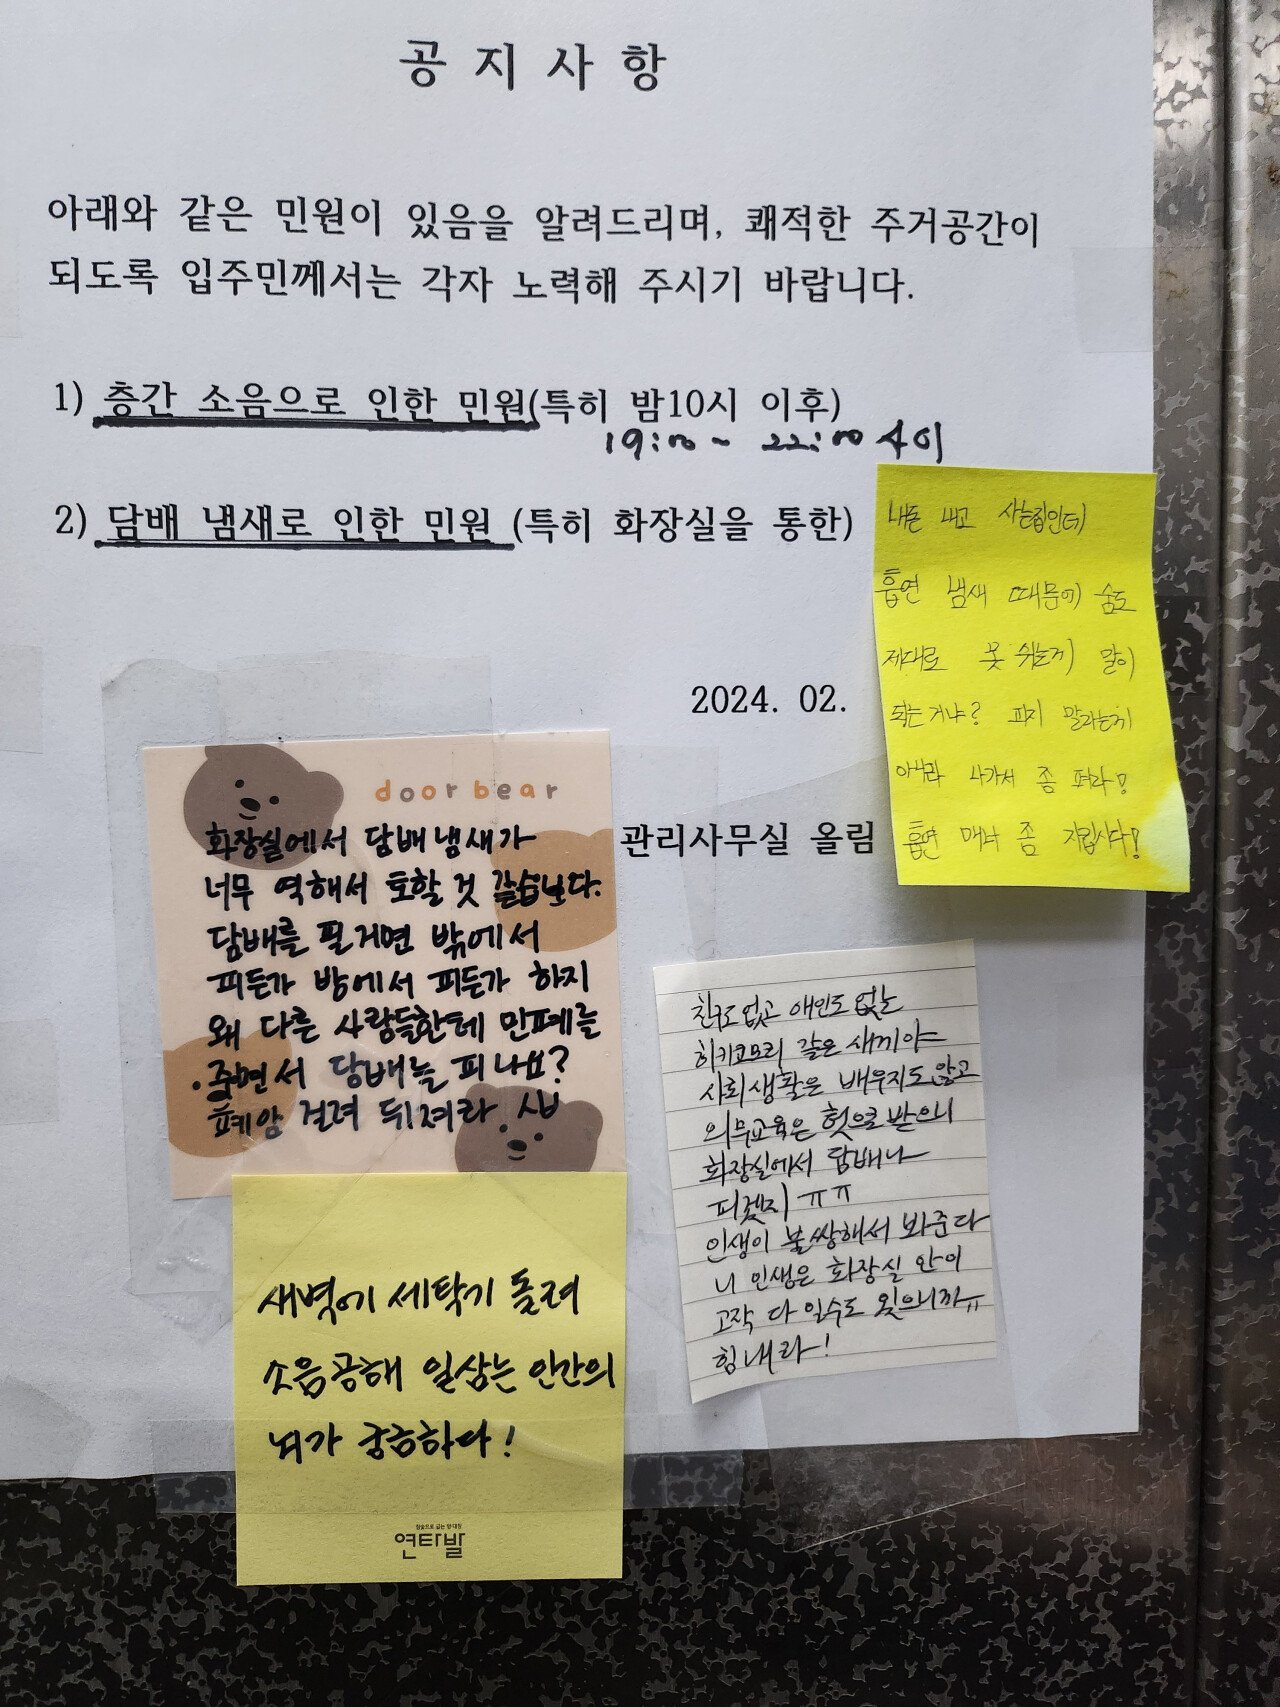 공지사항
아래와 같은 민원이 있음을 알려드리며, 쾌적한 주거공간이
되도록 입주민께서는 각자 노력해 주시기 바랍니다.
1) 층간 소음으로 인한 민원(특히 밤10시 이후)
19:00 ~ 22:00 사이
2) 담배 냄새로 인한 민원 (특히 화장실을 통한)
2024. 02.
관리사무실 올림
내돈 내고 사는집인데
흡연 냄새 때문에 숨도
제대로 못 쉬는게 말이
되는거냐? 피지 말라는게
아니라 나가서 좀 펴라!
흡연 매너 좀 지킵시다!
door bear
화장실에서 담배냄새가
너무 역해서 토할 것 같습니다.
담배를 필거면 밖에서
피든가 방에서 피든가 하지
왜 다른 사람들한테 민폐를
주면서 담배를 피나요?
폐암 걸려 뒤져라 시
친구도 없고 애인도 없는
히키코모리 같은 새끼야
사회생활은 배우지도 않고
의무교육은 헛으로 받으니
화장실에서 담배나
피겠지 ㅠㅠ
인생이 불쌍해서 봐준다
니 인생은 화장실 안이
고작 다 일수도 있으니까ㅠ
힘내라!
새벽에 세탁기 돌려
소음공해 일삼는 인간의
뇌가 궁금하다!
참숯으로 굽는 양·대창
연타발